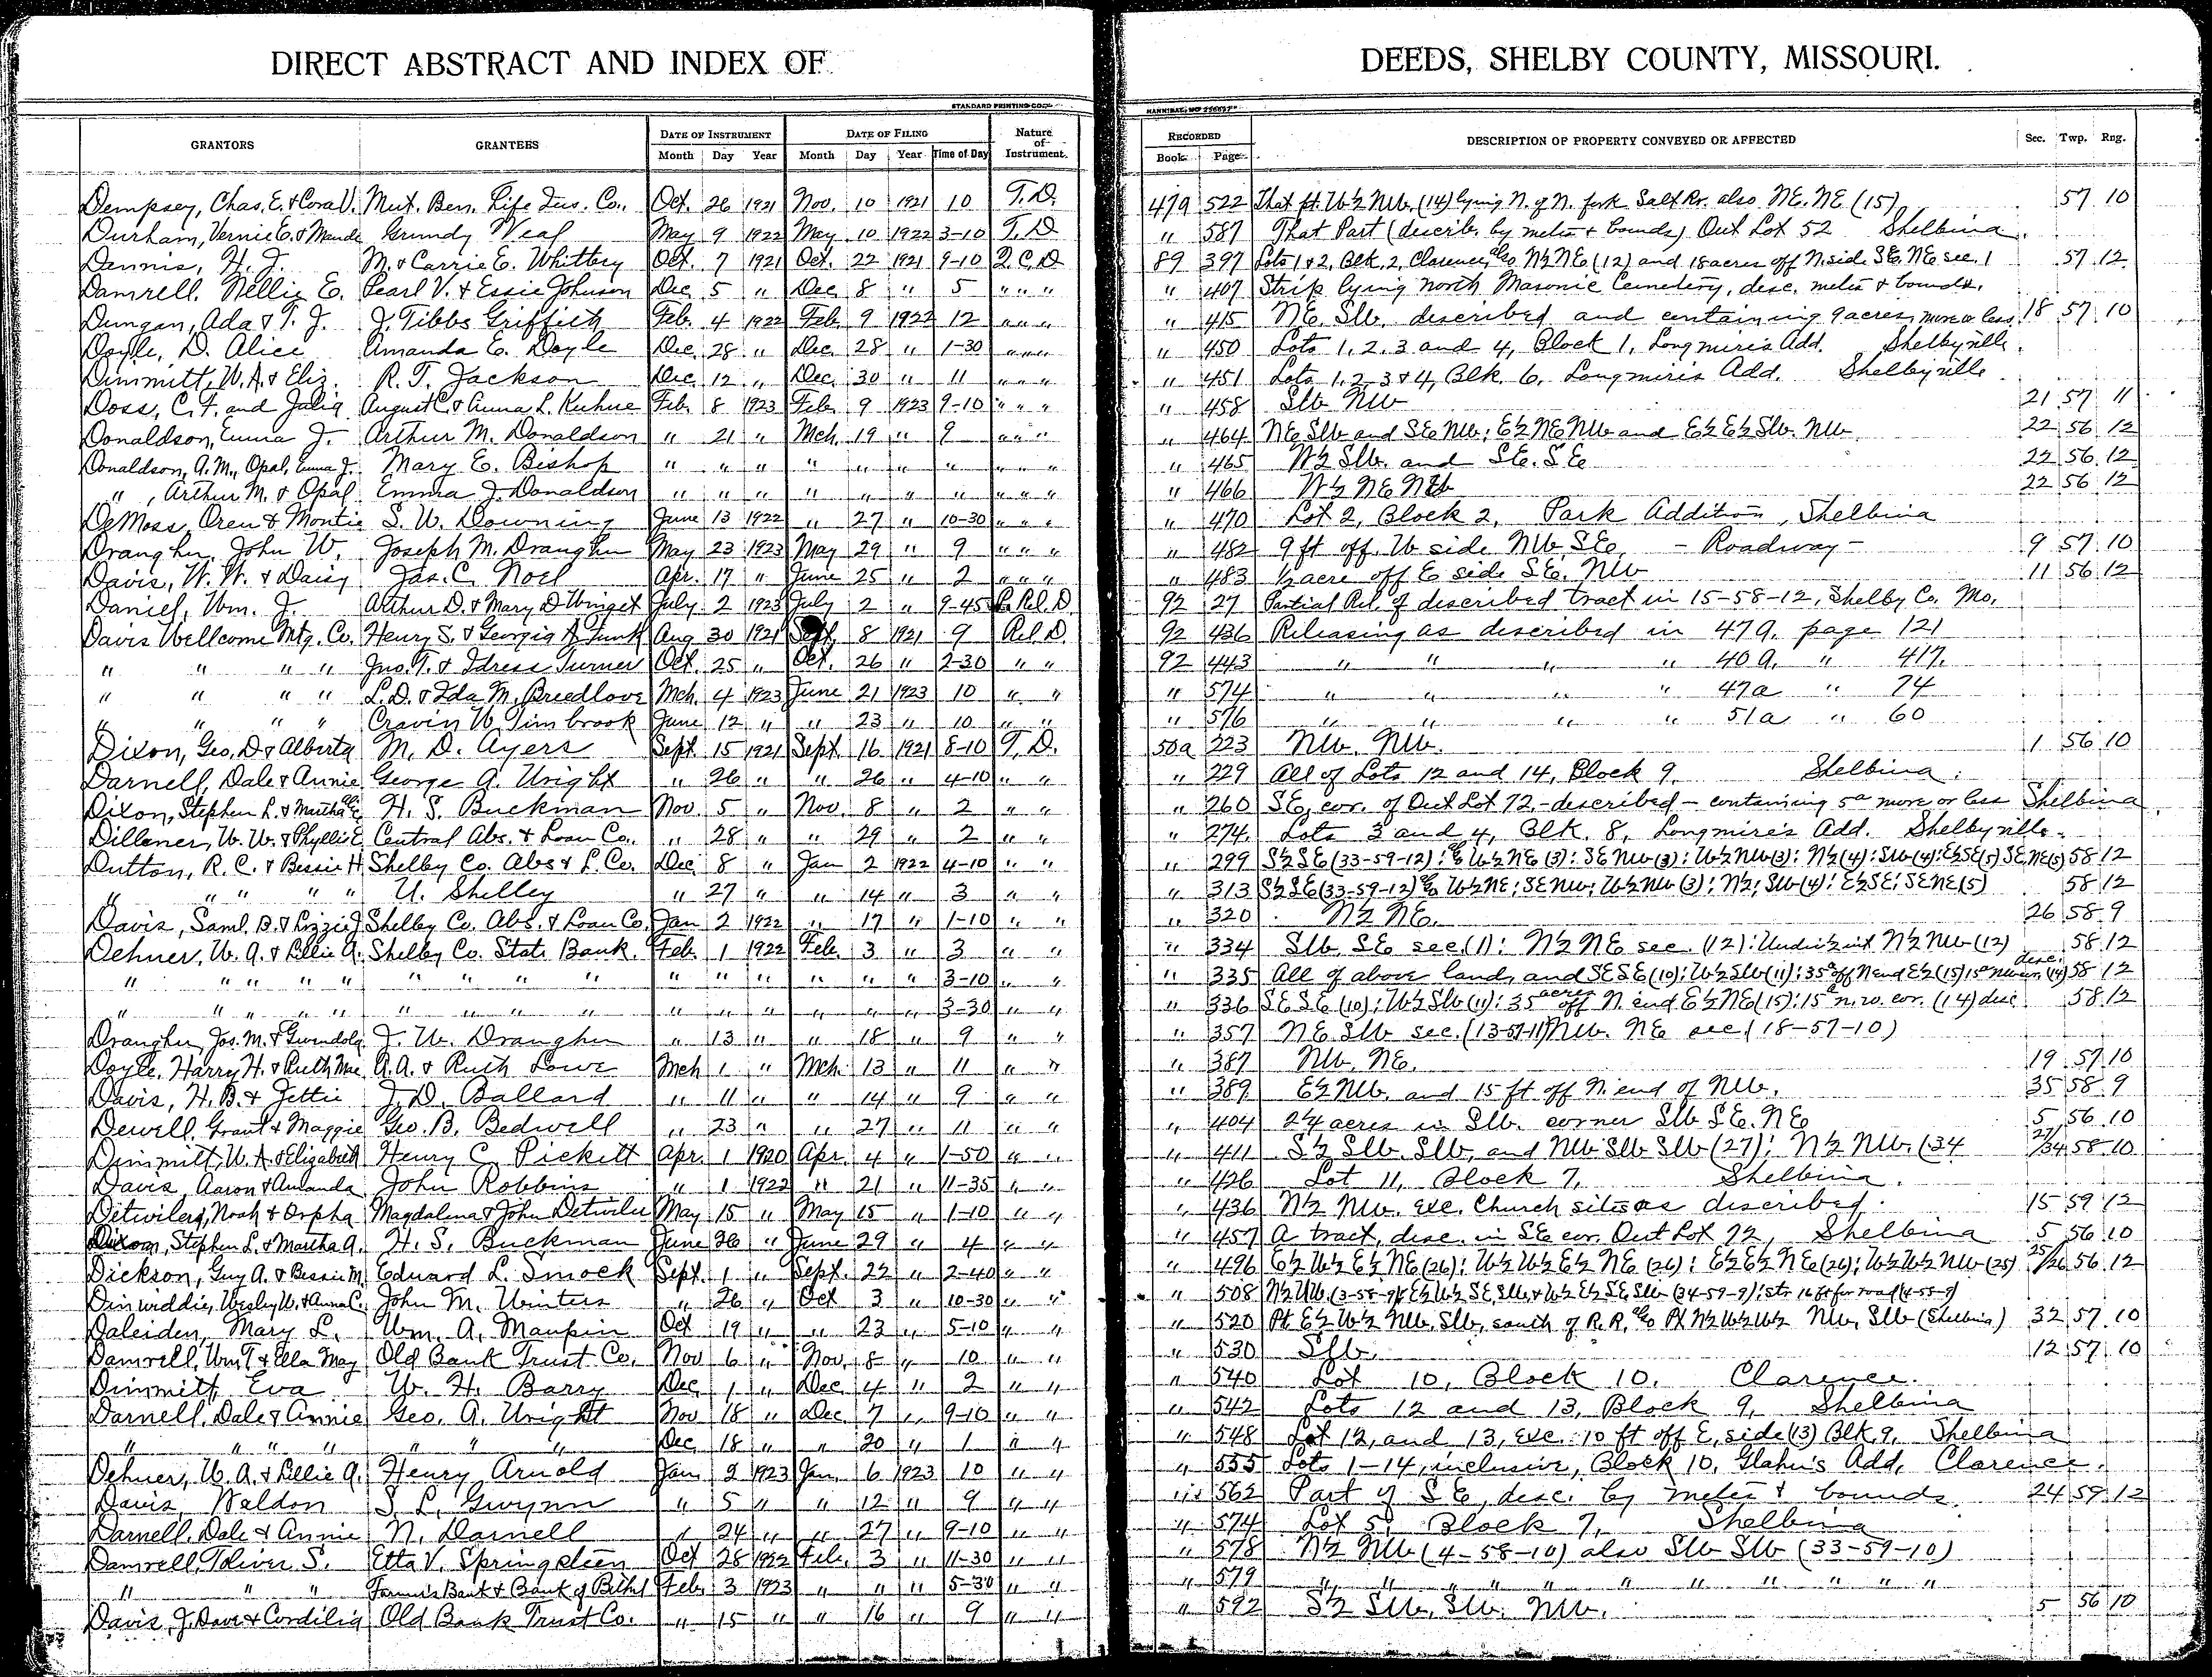 DIRECT ABSTRACT AND INDEX OF DEEDS, SHELBY COUNTY, MISSOURI.
STANDARD PRINTING CO. HANNIBAL, MO
GRANTORS GRANTEES DATE OF INSTRUMENT DATE OF FILING Nature of Instrument. RECORDED DESCRIPTION OF PROPERTY CONVEYED OR AFFECTED Sec. Twp. Rng.
Month Day Year Month Day Year Time of Day Book Page
Dempsey, Chas. E. & Cora V. Mut. Ben. Life Ins. Co., Oct. 26 1921 Nov. 10 1921 10 T.D. 47a 522 That pt. W½ NW. (14) lying N. of N. fork Salt Rv. also NE. NE (15) 57 10
Durham, Vernie E. & Maude Grundy Weaf May 9 1922 May 10 1922 3-10 T.D " 587 That Part (describ. by metes & bounds) Out Lot 52 Shelbina.
Dennis, H. J. M. & Carrie E. Whitby Oct. 7 1921 Oct. 22 1921 9-10 Q.C.D 89 397 Lots 1 & 2, Blk. 2, Clarence, also N½ NE (12) and 18 acres off N. side SE. NE sec. 1 57 12
Damrell, Nellie E. Pearl V. & Essie Johnson Dec 5 " Dec 8 " 5 " " " " 407 Strip lying north Masonic Cemetery, desc. metes & bounds.
Dungan, Ada & T. J. J. Tibbs Griffith Feb. 4 1922 Feb 9 1922 12 " " " " 415 NE. SW. described and containing 9 acres, more or less 18 57 10
Doyle, D. Alice Amanda E. Doyle Dec. 28 " Dec. 28 " 1-30 " " " " 450 Lots 1, 2, 3 and 4, Block 1, Longmire's Add. Shelbyville.
Dimmitt, W. A. & Eliz. R. T. Jackson Dec. 12 " Dec. 30 " 11 " " " " 451 Lots 1, 2, 3 & 4, Blk. 6, Longmire's Add. Shelbyville
Doss, C. F. and Julia August C. & Anna L. Kuhne Feb. 8 1923 Feb. 9 1923 9-10 " " " " 458 SW NW 21 57 11
Donaldson, Emma J. Arthur M. Donaldson " 21 " Mch. 19 " 9 " " " " 464 NE SW and SE NW; E½ NE NW and E½ E½ SW. NW 22 56 12
Donaldson, A. M., Opal, Emma J. Mary E. Bishop " " " " " " " " " " " 465 N½ SW. and SE. SE 22 56 12
" , Arthur M. & Opal Emma J. Donaldson " " " " " " " " " " " 466 N½ NE NW 22 56 12
DeMoss, Oren & Montie S. W. Downing June 13 1922 " 27 " 10-30 " " " " 470 Lot 2, Block 2, Park Addition, Shelbina
Draughn, John W. Joseph M. Draughn May 23 1923 May 29 " 9 " " " " 482 9 ft off. W side NW. SE. - Roadway - 9 57 10
Davis, W. W. & Daisy Jas. C. Noel Apr. 17 " June 25 " 2 " " " " 483 ½ acre off E side SE. NW 11 56 12
Daniel, Wm. J. Arthur D. & Mary D Winget July 2 1923 July 2 " 9-45 P. Rel. D. 92 27 Partial Rel. of described tract in 15-58-12, Shelby Co. Mo.
Davis Wellcome Mtg. Co. Henry S. & Georgia A. Funk Aug 30 1921 Sept. 8 1921 9 Rel. D. 92 436 Releasing as described in 47a, page 121
" " " " Jno. T. & Idress Turner Oct. 25 " Oct. 26 " 2-30 " " 92 443 " " " " 40a. " 417.
" " " " L. D. & Ida M. Breedlove Mch. 4 1923 June 21 1923 10 " " " 574 " " " " 47a " 74
" " " " Cravin W. Timbrook June 12 " " 23 " 10 " " " 576 " " " " 51a " 60
Dixon, Geo. D & Alberta M. D. Ayers Sept. 15 1921 Sept. 16 1921 8-10 T.D. 50a 223 NW. NW. 1 56 10
Darnell, Dale & Annie George A. Wright " 26 " " 26 " 4-10 " " " 229 All of Lots 12 and 14, Block 9, Shelbina.
Dixon, Stephen L. & Martha H. S. Buckman Nov. 5 " Nov. 8 " 2 " " " 260 SE. cor. of Out Lot 72, - described - containing 5a more or less Shelbina
Dillener, W. W. & Phyllis E Central Abs. & Loan Co. " 28 " " 29 " 2 " " " 274 Lots 3 and 4, Blk. 8, Longmire's Add. Shelbyville.
Dutton, R. C. & Bessie H Shelby Co. Abs & L. Co. Dec 8 " Jan 2 1922 4-10 " " " 299 S½ SE (33-59-12); also W½ NE (3): SE NW (3): W½ NW (3): N½ (4): SW (4): E½ SE (5) SE, NE (5) 58 12
" " " " U. Shelley " 27 " " 14 " 3 " " " 313 S½ SE (33-59-12) also W½ NE; SE NW; W½ NW (3); N½; SW (4): E½ SE; SE NE (5) 58 12
Davis, Saml. B. & Lizzie J Shelby Co. Abs. & Loan Co. Jan 2 1922 " 17 " 1-10 " " " 320 N½ NE. 26 58 9
Dehner, W. A. & Lillie A. Shelby Co. State Bank. Feb. 1 1922 Feb. 3 " 3 " " " 334 SW. SE sec. (1): N½ NE sec. (12): Undiv ½ int N½ NW (12) 58 12
" " " " " " " " " " " " " " 3-10 " " " 335 All of above land, and SE SE (10): W½ SW (11): 35a off N end E½ (15) 15a NW cor. (14) desc. 58 12
" " " " " " " " " " " " " " 3-30 " " " 336 SE SE (10); W½ SW (11): 35 acres off N. end E½ NE (15): 15a n.w. cor. (14) desc. 58 12
Draughn, Jos. M. & Gwendoly J. W. Draughn " 13 " " 18 " 9 " " " 357 NE SW sec. (13-57-11) NW. NE sec. (18-57-10)
Doyle, Harry H. & Ruth Mae A. A. & Ruth Lowe Mch 1 " Mch. 13 " 11 " " " 387 NW. NE. 19 57 10
Davis, H. B. & Jettie J. D. Ballard " 11 " " 14 " 9 " " " 389 E½ NW. and 15 ft off N. end of NW. 35 58 9
Dewell, Grant & Maggie Geo. B. Bedwell " 23 " " 27 " 11 " " " 404 2¼ acres in SW. corner SW SE. NE 5 56 10
Dimmitt, W. A. & Elizabeth Henry C. Pickett Apr. 1 1920 Apr. 4 " 1-50 " " " 411 S½ SW. SW. and NW SW SW (27); N½ NW. (34 27/34 58 10
Davis, Aaron & Amanda John Robbins " 1 1922 " 21 " 11-35 " " " 426 Lot 11, Block 7, Shelbina.
Detwiler, Noah & Orpha Magdalena & John Detwiler May 15 " May 15 " 1-10 " " " 436 N½ NW. exc. Church site as described. 15 59 12
Dixon, Stephen L. & Martha A. H. S. Buckman June 26 " June 29 " 4 " " " 457 A tract, desc. in SE cor. Out Lot 72, Shelbina 5 56 10
Dickson, Guy A. & Bessie M. Edward L. Smock Sept. 1 " Sept. 22 " 2-40 " " " 496 E½ W½ E½ NE (26): W½ W½ E½ NE (26): E½ E½ NE (26); W½ W½ NW (25) 25/26 56 12
Dinwiddie, Wesley W. & Anna C. John M. Winters " 26 " Oct 3 " 10-30 " " " 508 N½ NW (3-58-9) & E½ W½ SE SW, & W½ E½ SE SW (34-59-9)
Daleiden, Mary L. Wm. A. Maupin Oct 19 " " 23 " 5-10 " " " 520 Pt E½ W½ NW. SW, south of R.R. also Pt N½ W½ W½ NW, SW (Shelbina) 32 57 10
Damrell, Wm T & Ella May Old Bank Trust Co. Nov 6 " Nov. 8 " 10 " " " 530 SW. 12 57 10
Dimmitt Eva W. H. Barry Dec. 1 " Dec. 4 " 2 " " " 540 Lot 10, Block 10. Clarence.
Darnell, Dale & Annie Geo. A. Wright Nov 18 " Dec 7 " 9-10 " " " 542 Lots 12 and 13, Block 9, Shelbina
" " " " " " " Dec 18 " " 20 " 1 " " " 548 Lot 12, and 13, exc. 10 ft off E. side (13) Blk. 9, Shelbina
Dehner, W. A. & Lillie A. Henry Arnold Jan 2 1923 Jan. 6 1923 10 " " " 555 Lots 1-14, inclusive, Block 10, Glahn's Add, Clarence.
Davis, Waldon S. L. Gwynn " 5 " " 12 " 9 " " " 562 Part of SE, desc. by metes & bounds. 24 59 12
Darnell, Dale & Annie N. Darnell " 24 " " 27 " 9-10 " " " 574 Lot 5, Block 7, Shelbina
Damrell, Toliver S. Etta V. Springsteen Oct 28 1922 Feb. 3 " 11-30 " " " 578 N½ NW (4-58-10) also SW SW (33-59-10)
" " " Farmer's Bank & Bank of Bethel Feb. 3 1923 " " " 5-30 " " " 579 " " " " " " " " " "
Davis, J. Dave & Cordilia Old Bank Trust Co. " 15 " " 16 " 9 " " " 592 S½ SW. SW. NW. 5 56 10